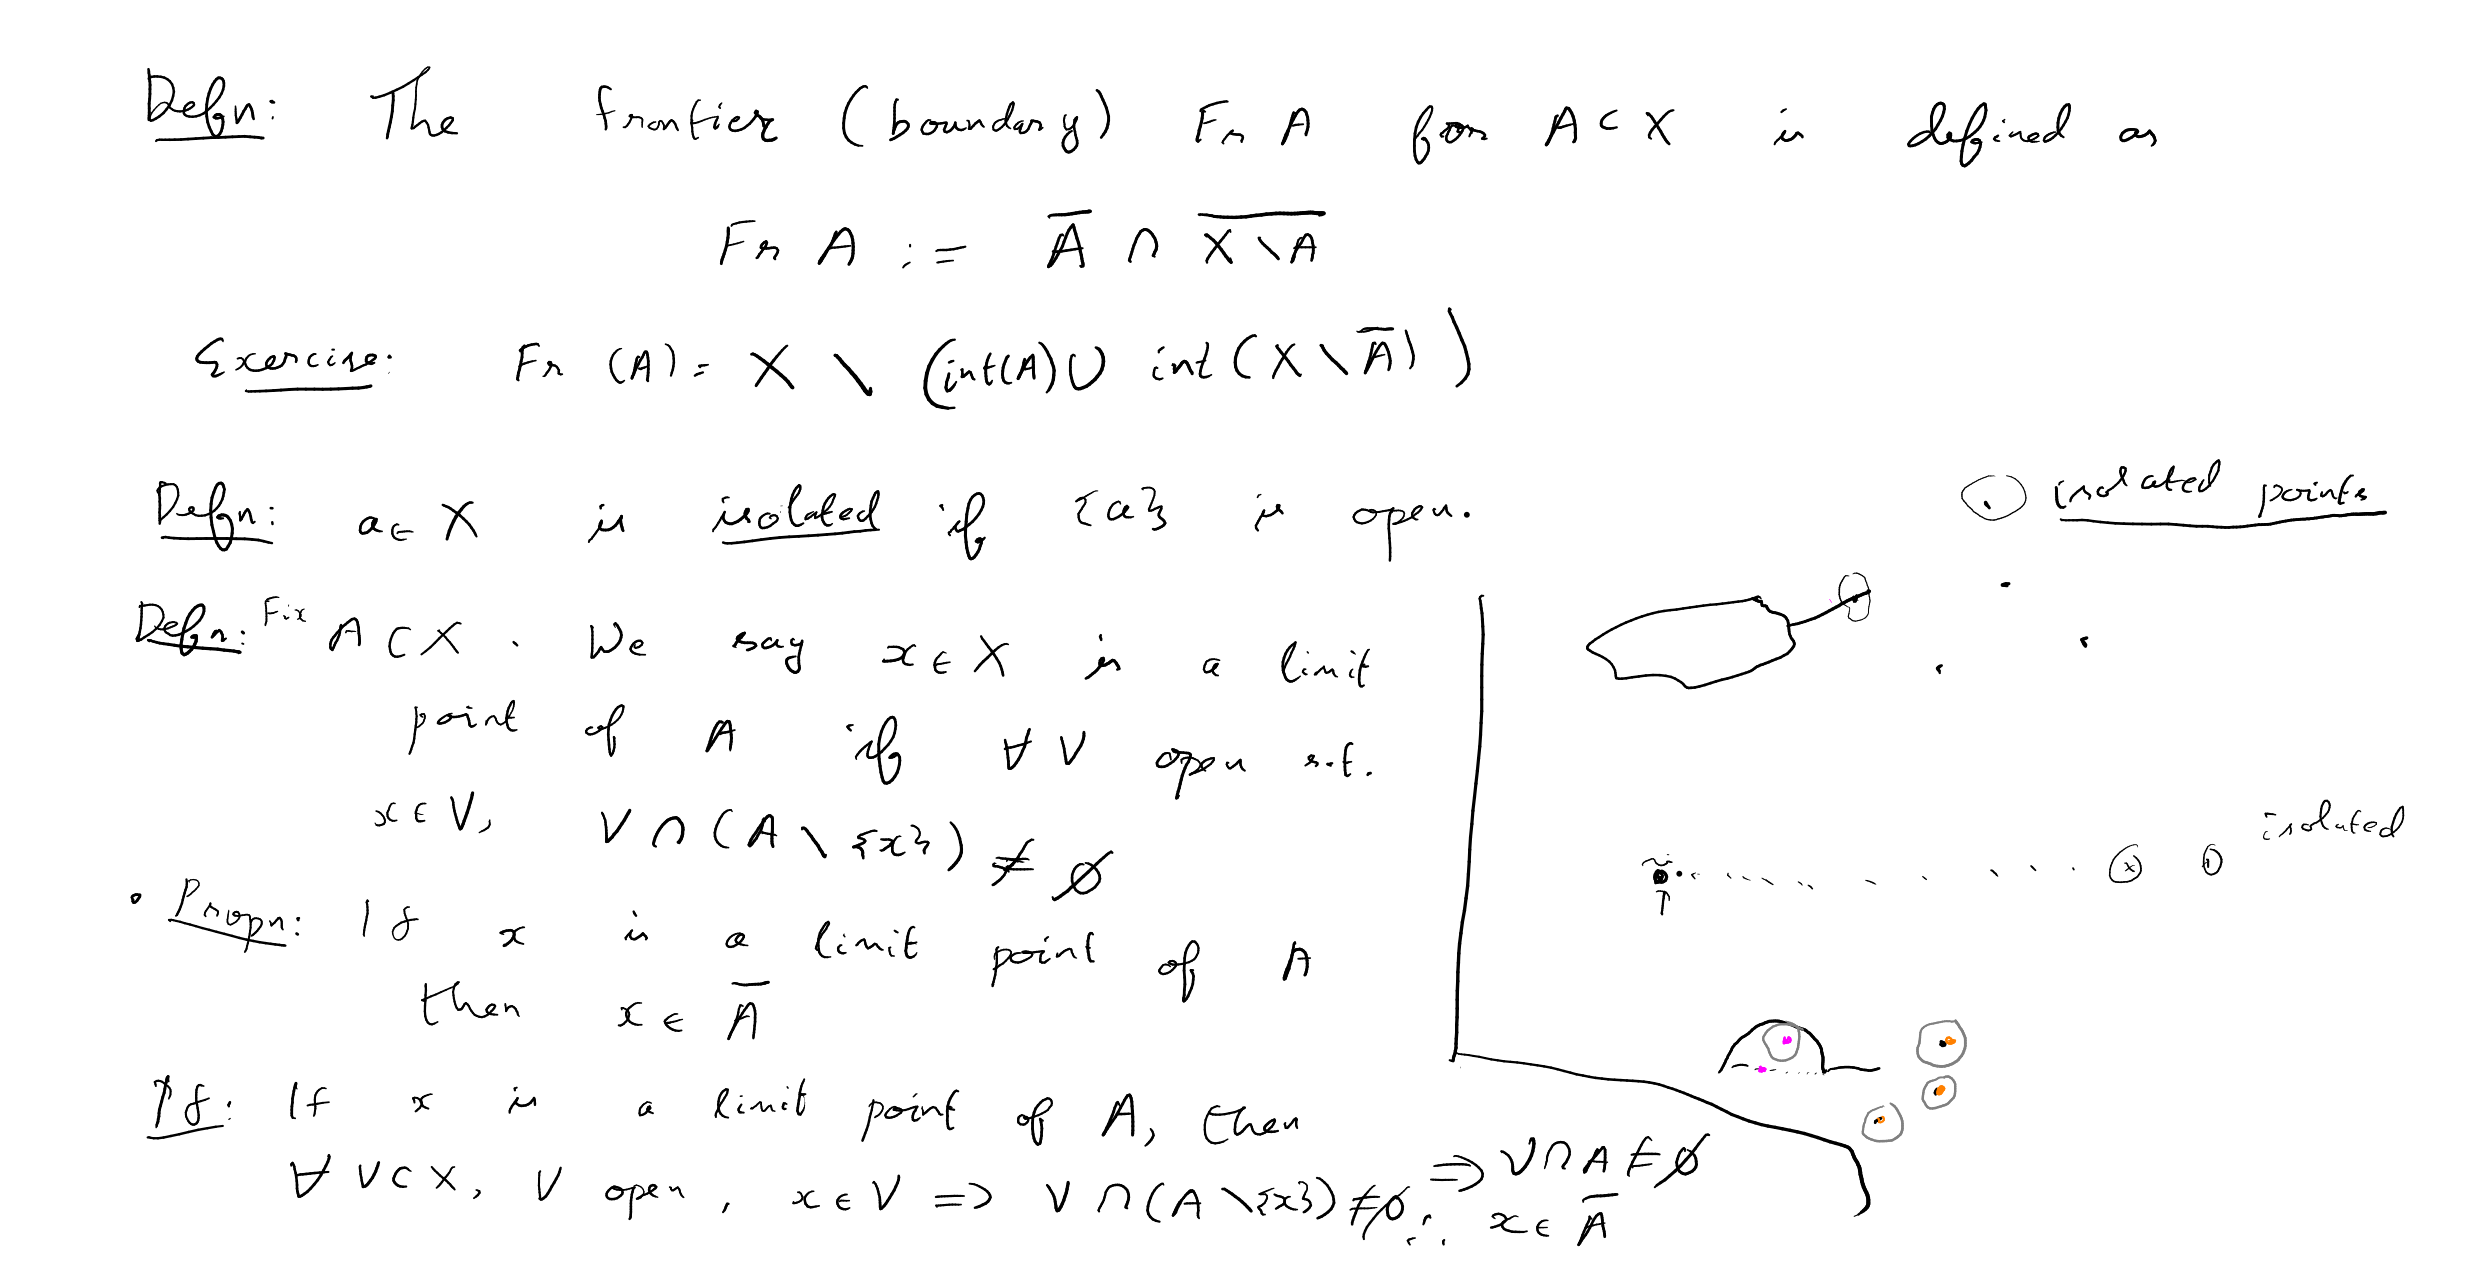 Defn: The frontier (boundary) Fr A for A ⊂ X is defined as
Fr A := A̅ ∩ \overline{X \ A}
Exercise: Fr (A) = X \ (int(A) ∪ int(X \ A̅))
Defn: a ∈ X is isolated if {a} is open.
isolated points
Defn: Fix A ⊂ X. We say x ∈ X is a limit
point of A if ∀ V open s.t.
x ∈ V, V ∩ (A \ {x}) ≠ ∅
isolated
• Propn: If x is a limit point of A
then x ∈ A̅
Pf: If x is a limit point of A, then
∀ V ⊂ X, V open, x ∈ V => V ∩ (A \ {x}) ≠ ∅ => V ∩ A ≠ ∅
∴ x ∈ A̅